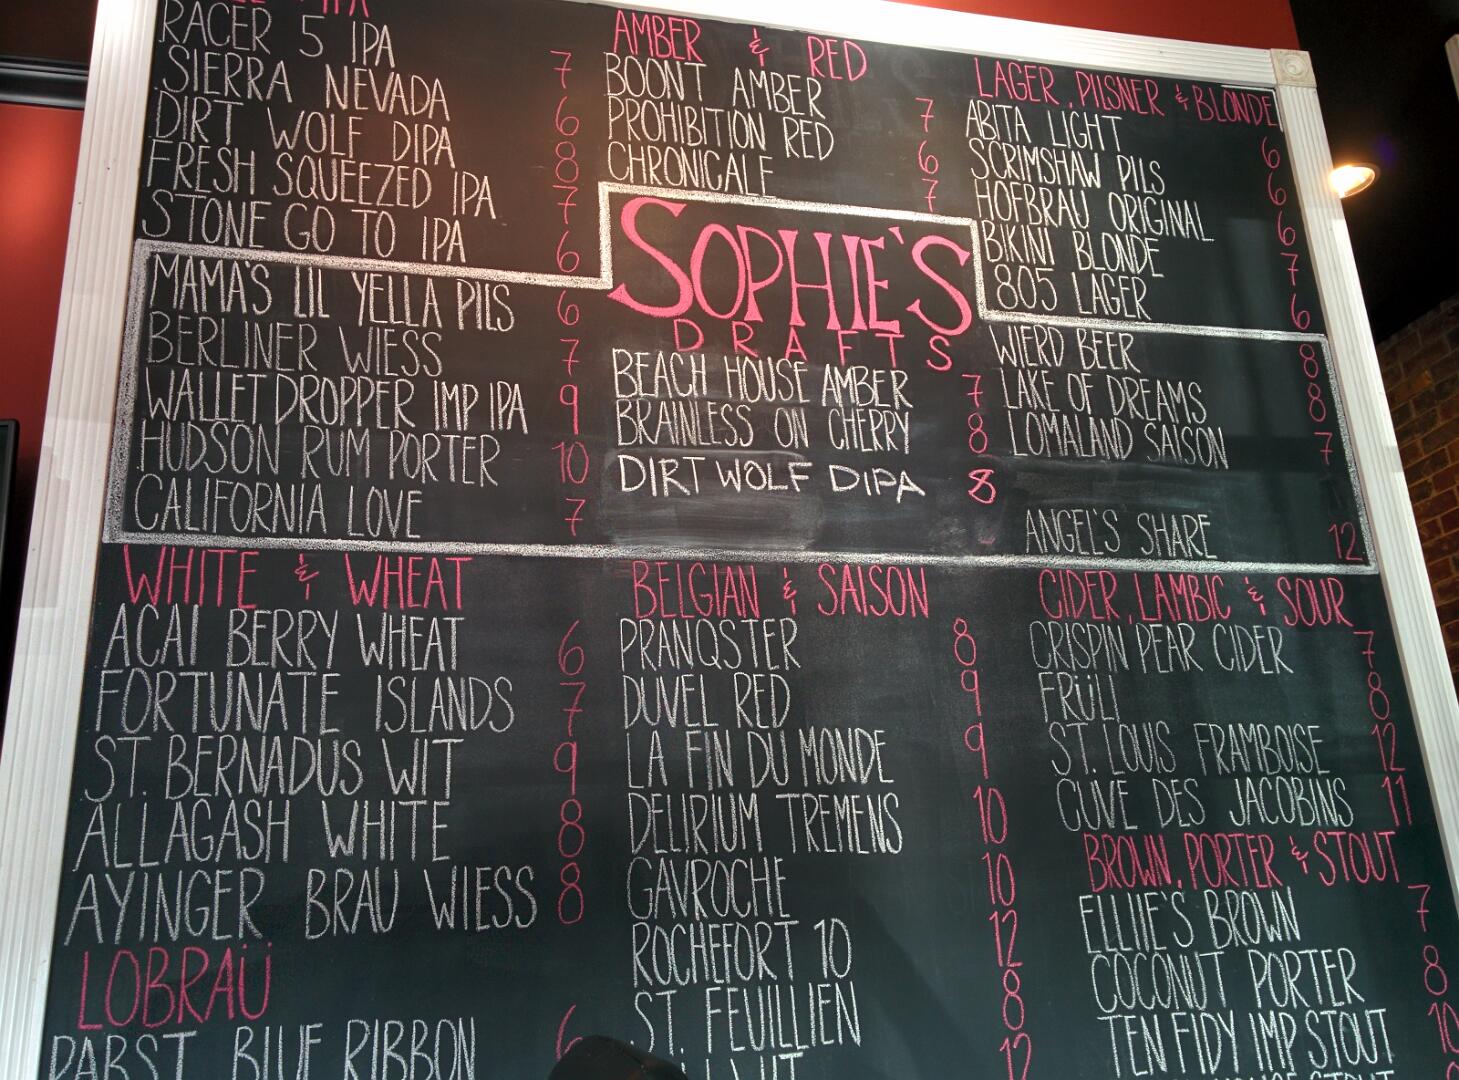 IPA
RACER 5 IPA 7
SIERRA NEVADA 6
DIRT WOLF DIPA 8
FRESH SQUEEZED IPA 7
STONE GO TO IPA 6
AMBER & RED
BOONT AMBER 7
PROHIBITION RED 6
CHRONICALE 7
LAGER, PILSNER & BLONDE
ABITA LIGHT 6
SCRIMSHAW PILS 6
HOFBRAU ORIGINAL 6
BIKINI BLONDE 7
805 LAGER 6
SOPHIE'S
DRAFTS
MAMA'S LIL YELLA PILS 6
BERLINER WIESS 7
WALLET DROPPER IMP IPA 9
HUDSON RUM PORTER 10
CALIFORNIA LOVE 7
BEACH HOUSE AMBER 7
BRAINLESS ON CHERRY 8
DIRT WOLF DIPA 8
WIERD BEER 8
LAKE OF DREAMS 8
LOMALAND SAISON 7
ANGEL'S SHARE 12
WHITE & WHEAT
ACAI BERRY WHEAT 6
FORTUNATE ISLANDS 7
ST. BERNADUS WIT 9
ALLAGASH WHITE 8
AYINGER BRAU WIESS 8
LOBRAÜ
PABST BLUE RIBBON 6
BELGIAN & SAISON
PRANQSTER 8
DUVEL RED 9
LA FIN DU MONDE 9
DELIRIUM TREMENS 10
GAVROCHE 10
ROCHEFORT 10 12
ST. FEUILLIEN 8
12
CIDER, LAMBIC & SOUR
CRISPIN PEAR CIDER 7
FRÜLI 8
ST. LOUIS FRAMBOISE 12
CUVE DES JACOBINS 11
BROWN, PORTER & STOUT
ELLIE'S BROWN 7
COCONUT PORTER 8
TEN FIDY IMP STOUT 10